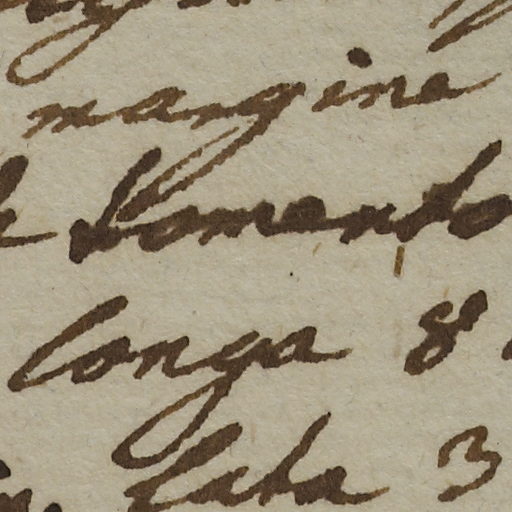 margine
tomento
longa 8
lata 3